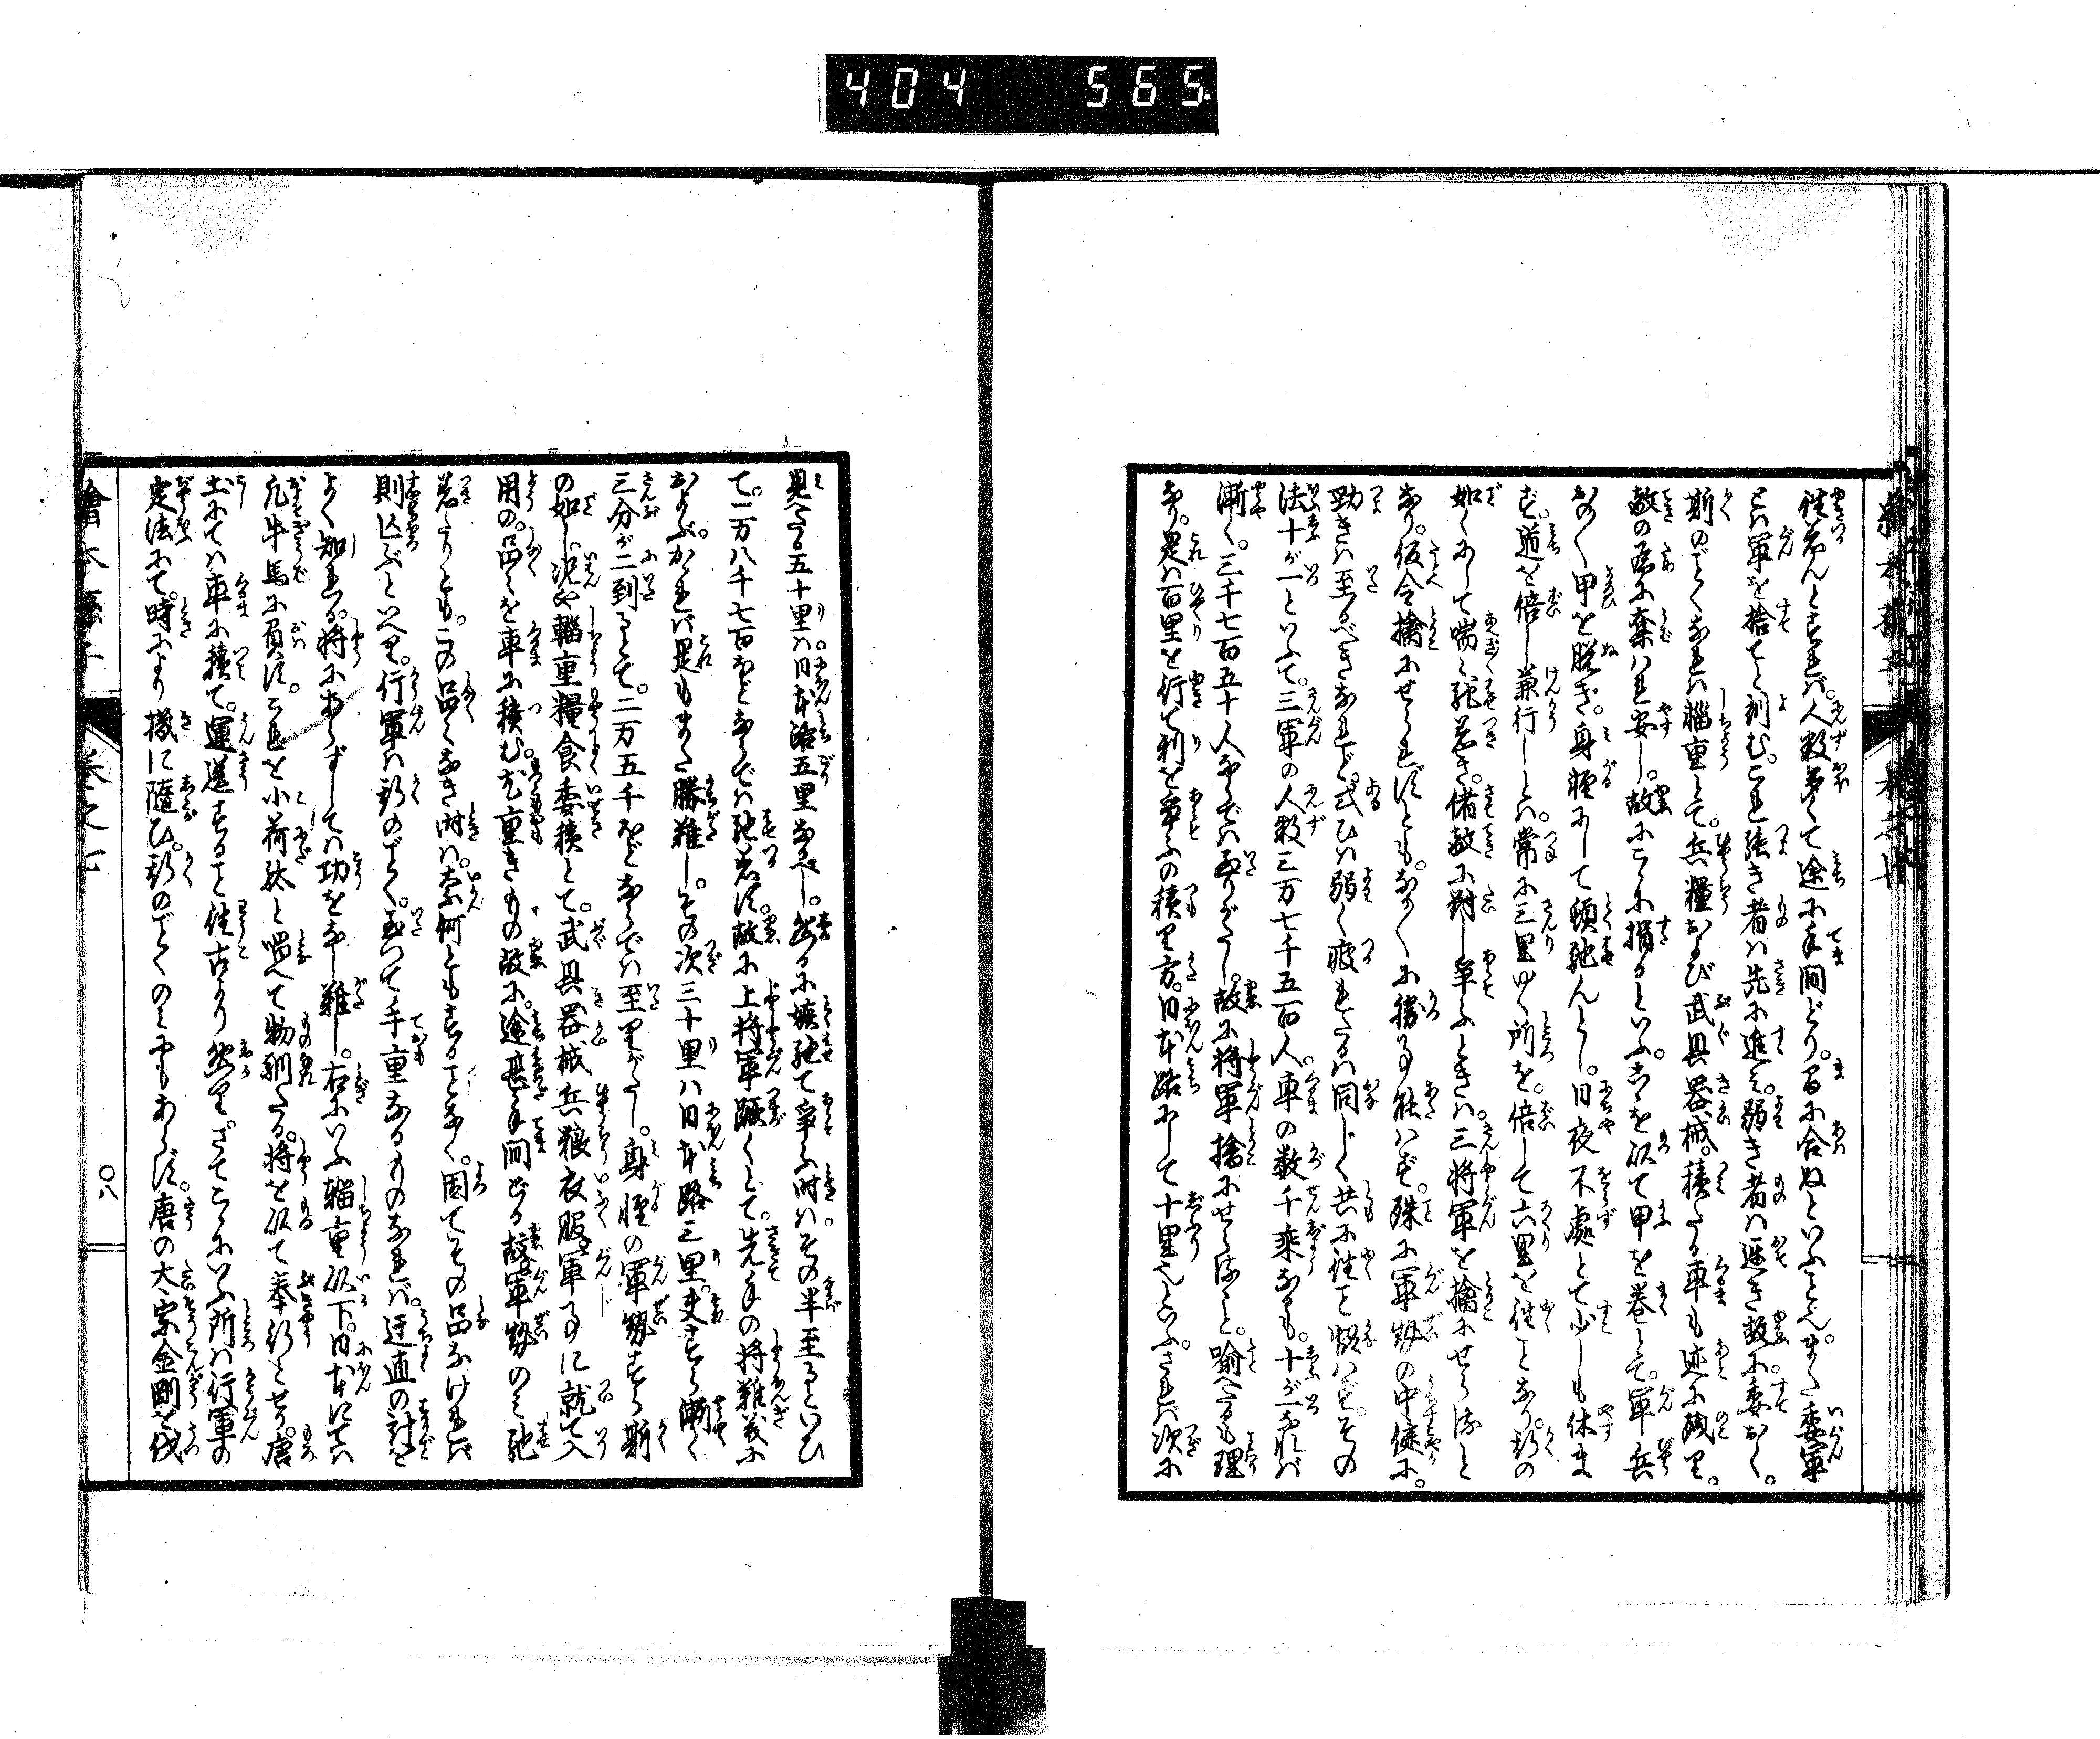 404 565
往着んとすれバ。人数多くて途に手間どり。間に合ぬといふことぞ。また委軍
とハ軍を捨てと訓む。これ強き者ハ先に進み。弱き者ハ遅き故に。委おく。
斯のごとくなれバ輜重とて。兵糧および武具器械。積たる車も迹に残り。
敵の為に奪はれ安し。故にこゝに捐るといふ。これを以て甲を巻とて。軍兵
おの〳〵甲を脱ぎ。身軽にして頓馳んとし。日夜不處とて少しも休ま
ず。道を倍し兼行しとハ。常に三里ゆく所を。倍して六里を往ことなり。斯の
如くにして喘々馳着き。偖敵に對し争ふときハ。三将軍を擒にせらると
なり。仮令擒にせられずとも。なか〳〵に勝事能はず。殊に軍勢の中健に。
勁きハ至るべきなれど。或ひハ弱く疲れたるハ同じく共に往こと慥はず。その
法十が一といふて。三軍の人数三万七千五百人。車の数千乗なるも。十が一なれバ
漸く。三千七百五十人ならでハ至りがたし。故に将軍擒にせらると。喩へたるも理
なり。是ハ百里を行て利を争ふの積り方。日本路にして十里也といふ。されバ次に
見へたる五十里ハ。日本路五里なるべし。然るに嬪馳て争ふ時ハ。その半至るといひ
て。二万八千七百ほどならでハ馳着ず。故に上将軍蹶くとて。先手の将難義に
およぶ。かゝれバ是もまた勝難し。その次三十里ハ日本路三里。夫すら漸く
三分が二到るとて。二万五千ほどならでハ至りがたし。身軽の軍勢すら斯
の如し。況や輜重糧食委積とて。武具器械兵粮衣服。軍事に就て入
用の。品〳〵を車に積む。尤重きもの故に。途甚手間どる。故に軍勢のミ馳
着たりとも。この品〳〵なき時ハ。奈何ともすることなく。因てその品なけれバ
則亡ぶといへり。行軍ハ斯のごとく。至つて手重なるものなれバ。迂直の計を
よく知れる。将にあらずしてハ功をなし難し。右にいふ輜重以下。日本にてハ
凡牛馬に負す。これを小荷駄と唱へて物馴たる。将を以て奉行とせり。唐
土にてハ車に積て。運送すること往古より然り。さてこゝにいふ所ハ行軍の
定法にて。時により機に隨ひ。斯のごとくのミにもあらず。唐の大宗金剛を伐
繪本孫子 巻之七 〇八